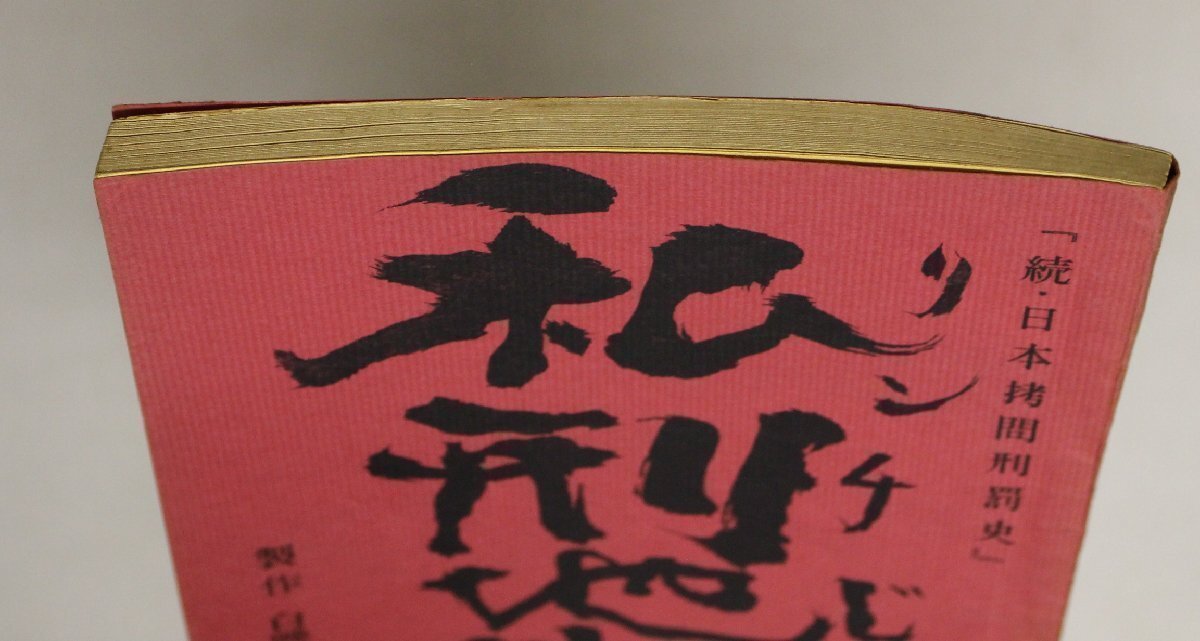 「続・日本拷問刑罰史」
リンチじ
私刑地
製作